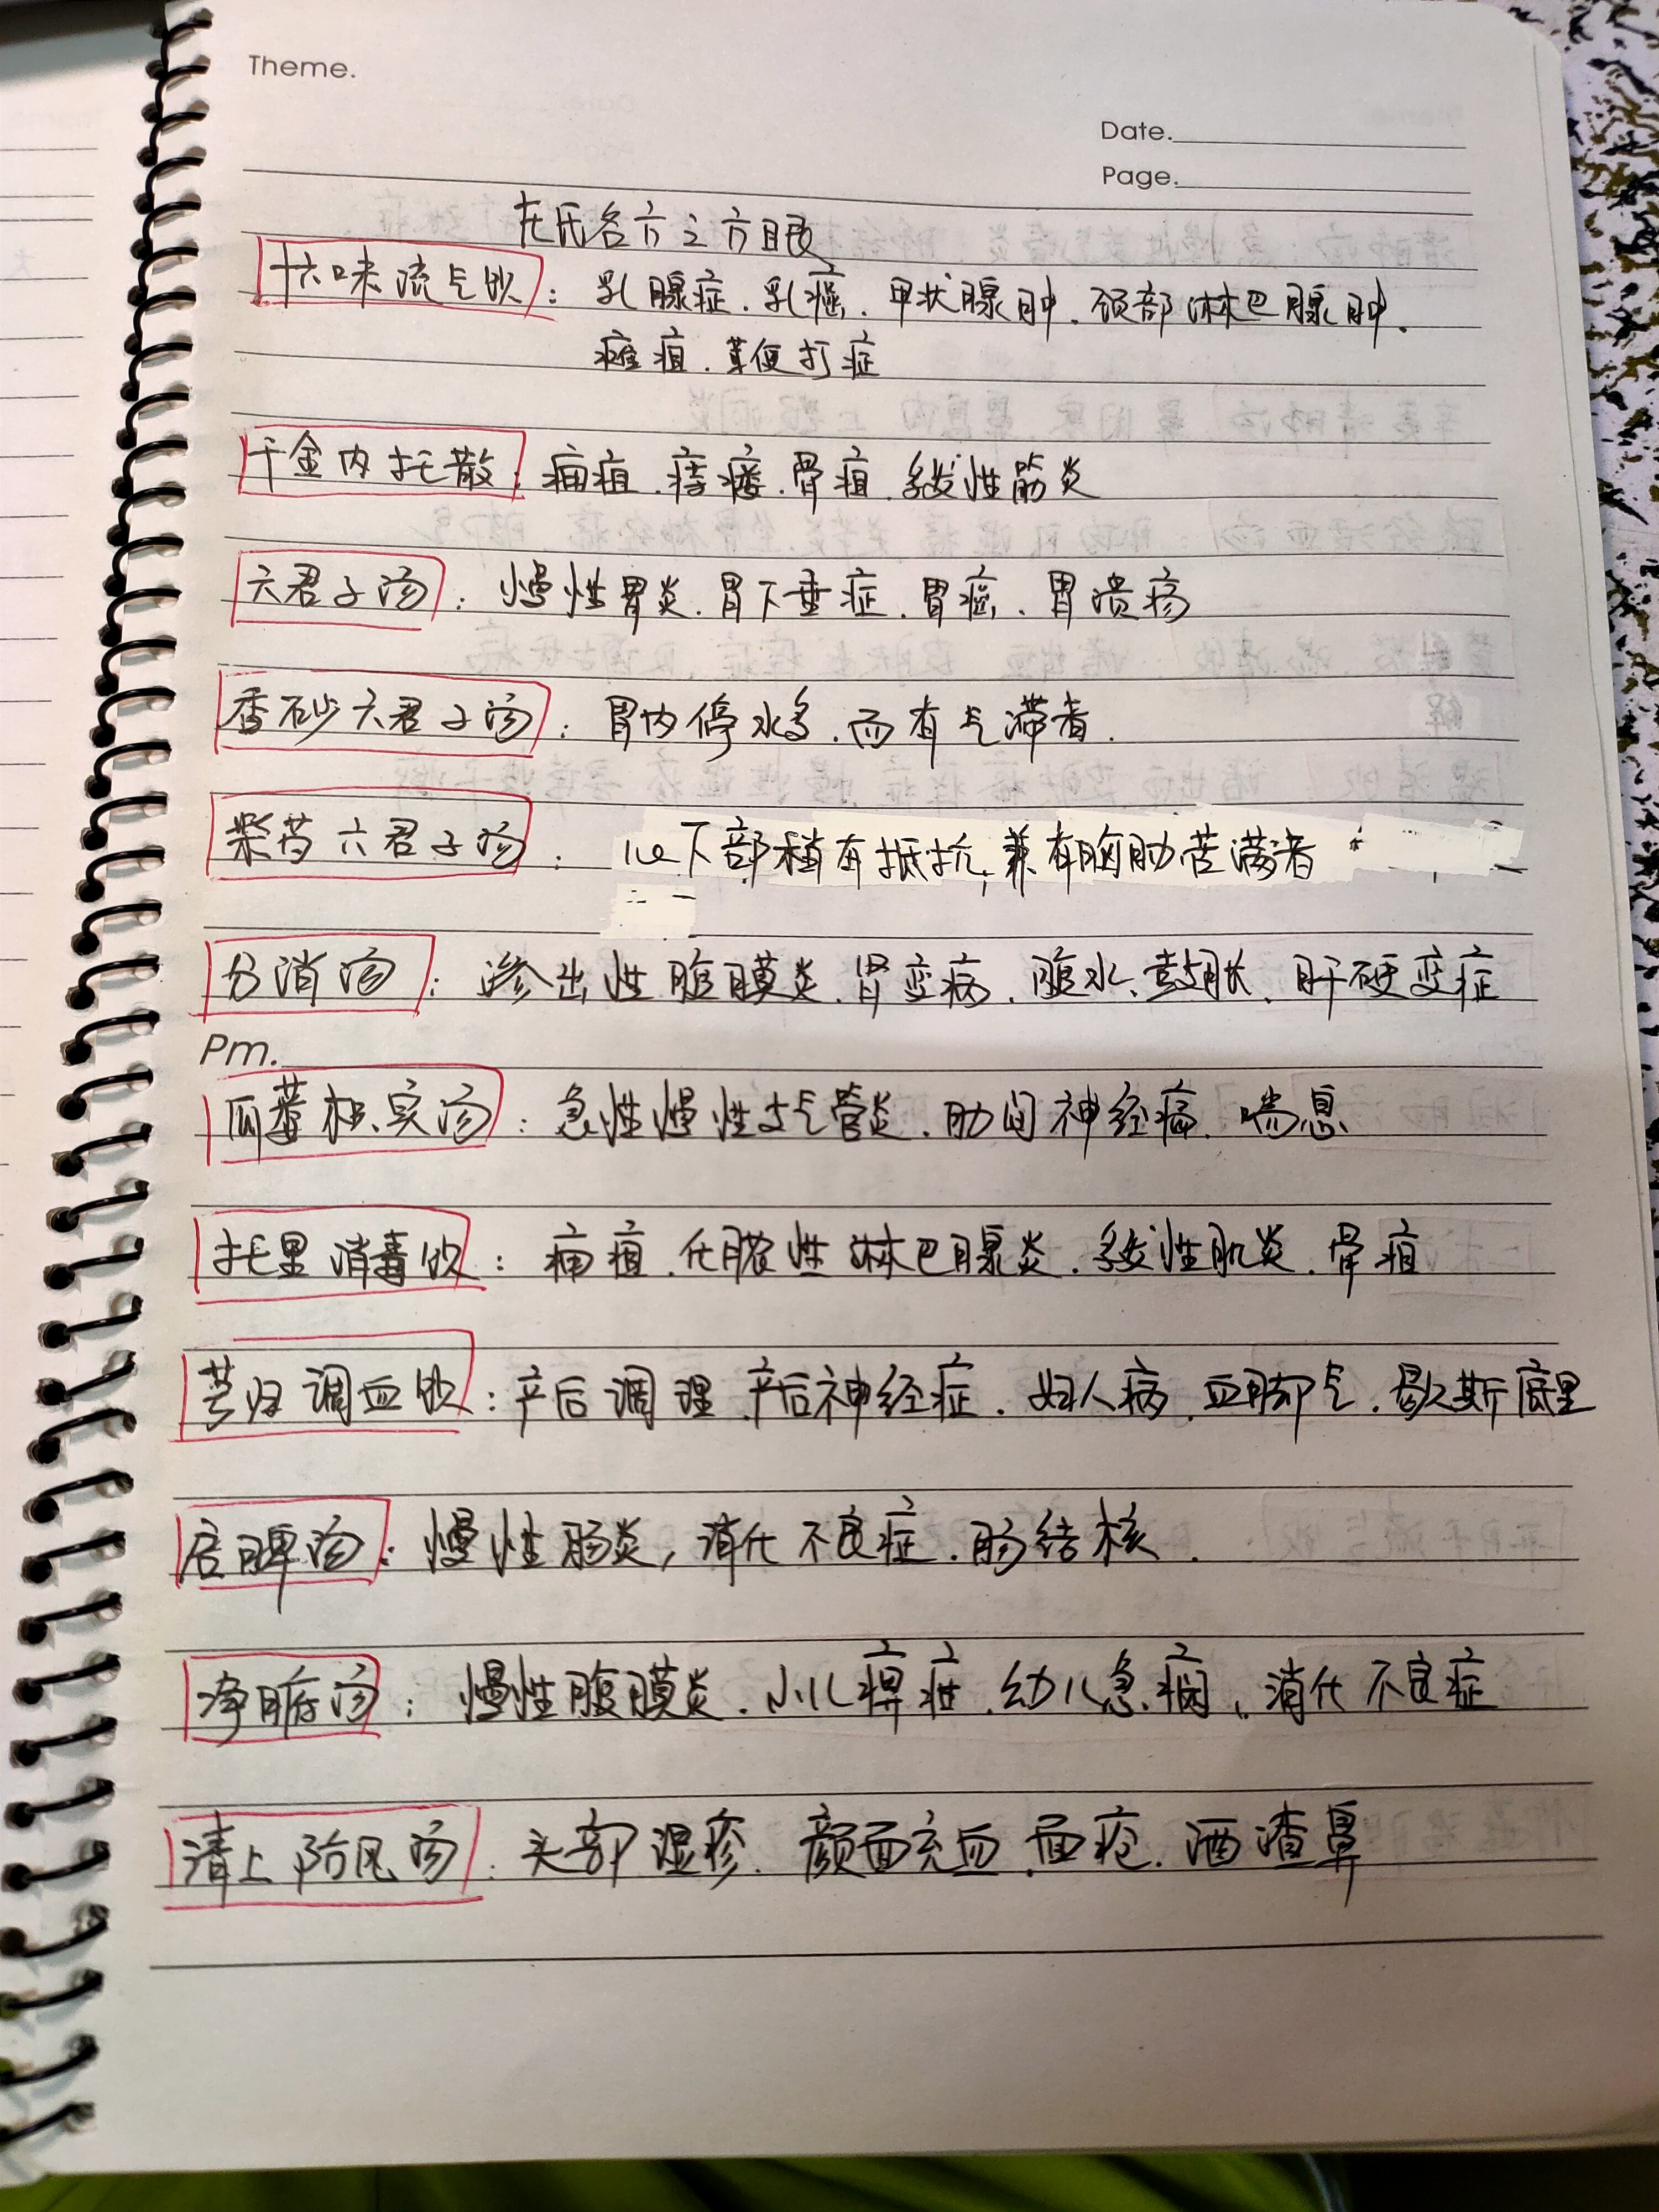 Theme.
Date.
Page.
庄氏各方之方眼
十六味流气饮：乳腺症．乳癌．甲状腺肿．颈部淋巴腺肿．
痈疽．打症
千金内托散：痈疽．痔瘘．骨疽．多发性筋炎
六君子汤：慢性胃炎．胃下垂症．胃癌．胃溃疡
香砂六君子汤：胃内停水多．而有气滞者．
柴芍六君子汤：心下部稍有抵抗，兼有胸肋苦满者
分消汤：渗出性腹膜炎．肾变病．腹水、鼓胀．肝硬变症
Pm.
瓜蒌枳实汤：急性慢性支气管炎．肋间神经痛．喘息
托里消毒饮：痈疽．化脓性淋巴腺炎．多发性肌炎．骨疽
芎归调血饮：产后调理．产后神经症．妇人病．血脚气．歇斯底里
启脾汤：慢性肠炎，消化不良症．肠结核．
净腑汤：慢性腹膜炎．小儿痞症．幼儿急痫．消化不良症
清上防风汤：头部湿疹．颜面充血．面疮．酒渣鼻